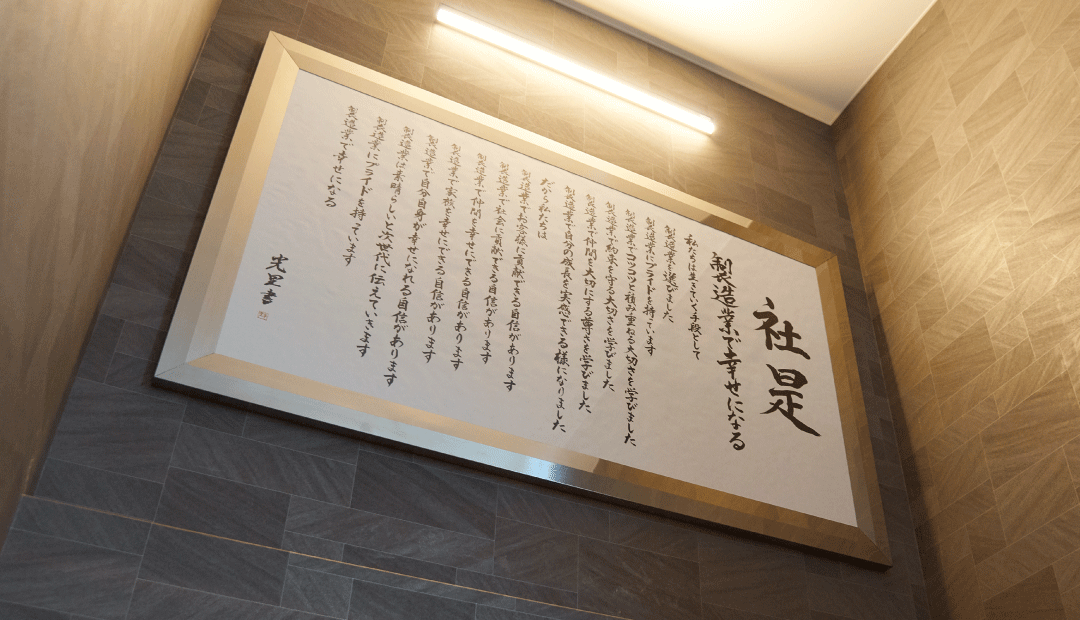 社是
製造業で幸せになる
私たちは生きていく手段として
製造業を選びました
製造業にプライドを持っています
製造業でコツコツと積み重ねる大切さを学びました
製造業で約束を守る大切さを学びました
製造業で仲間を大切にする尊さを学びました
製造業で自分の成長を実感できる様になりました
だから私たちは
製造業でお客様に貢献できる自信があります
製造業で社会に貢献できる自信があります
製造業で仲間を幸せにできる自信があります
製造業で家族を幸せにできる自信があります
製造業で自分自身が幸せになれる自信があります
製造業は素晴らしいと次世代に伝えていきます
製造業にプライドを持っています
製造業で幸せになる